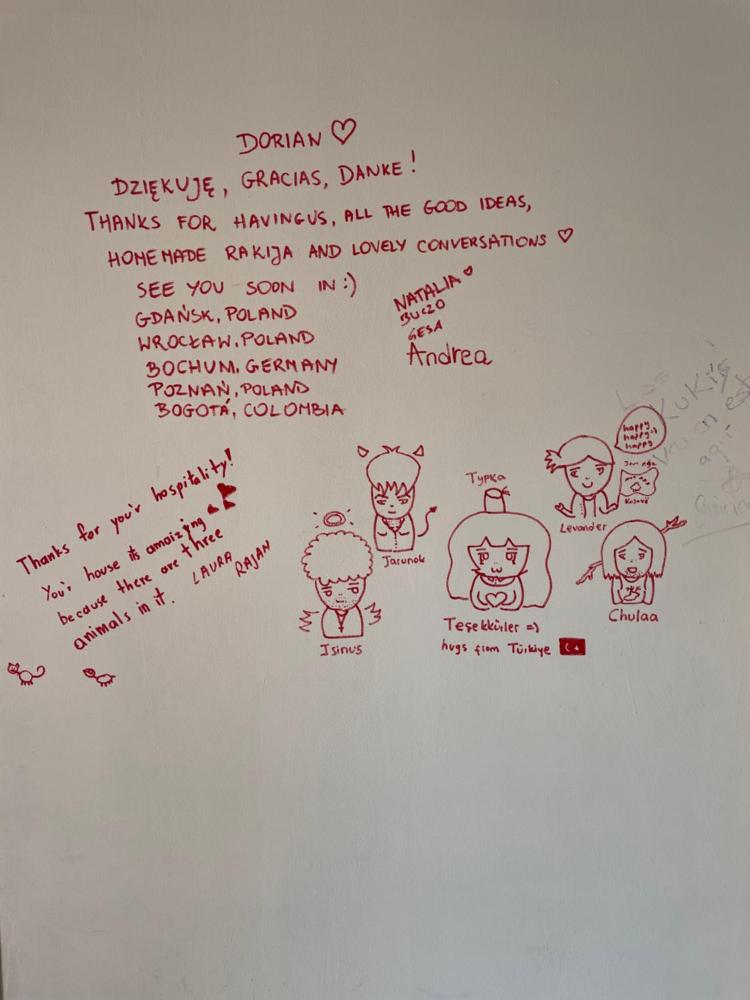 DORIAN ♡
DZIĘKUJĘ, GRACIAS, DANKE!
THANKS FOR HAVINGUS, ALL THE GOOD IDEAS,
HOMEMADE RAKIJA AND LOVELY CONVERSATIONS ♡
SEE YOU SOON IN :)
GDAŃSK, POLAND
WROCŁAW, POLAND
BOCHUM, GERMANY
POZNAŃ, POLAND
BOGOTÁ, COLOMBIA
NATALIA
BUCZO
GESA
Andrea
Thanks for you'r hospitality!
You'r house is amaizing
because there are three
animals in it.
LAURA
RAJAN
happy
happy :)
happy
Kosově
Levander
Jarunok
Isinus
Typka
Teşekkürler =)
hugs from Türkiye
Chulaa
KUKIS